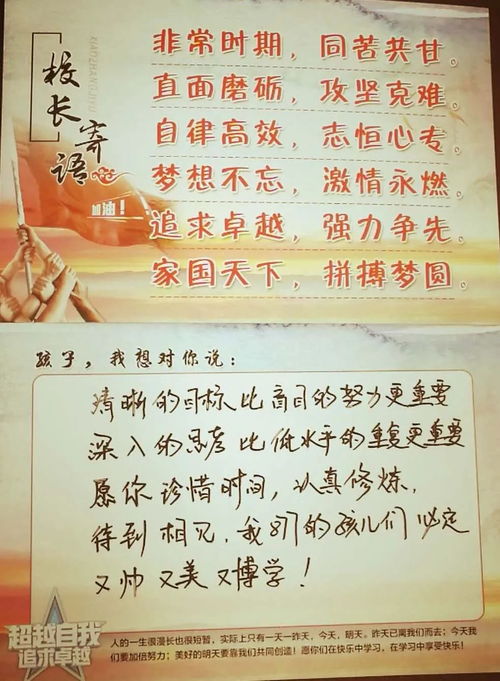 校长寄语
XIAOZHANGJIYU
加油！
非常时期，同苦共甘。
直面磨砺，攻坚克难。
自律高效，志恒心专。
梦想不忘，激情永燃。
追求卓越，强力争先。
家国天下，拼搏梦圆。
孩子，我想对你说：
清晰的目标比盲目的努力更重要
深入的思考比低水平的重复更重要
愿你珍惜时间，认真修炼，
待到相见，我们的孩儿们必定
又帅又美又博学！
超越自我
追求卓越
人的一生很漫长也很短暂，实际上只有一天一昨天，今天，明天。昨天已离我们而去；今天我
们要加倍努力；美好的明天要靠我们共同创造！愿你们在快乐中学习，在学习中享受快乐！